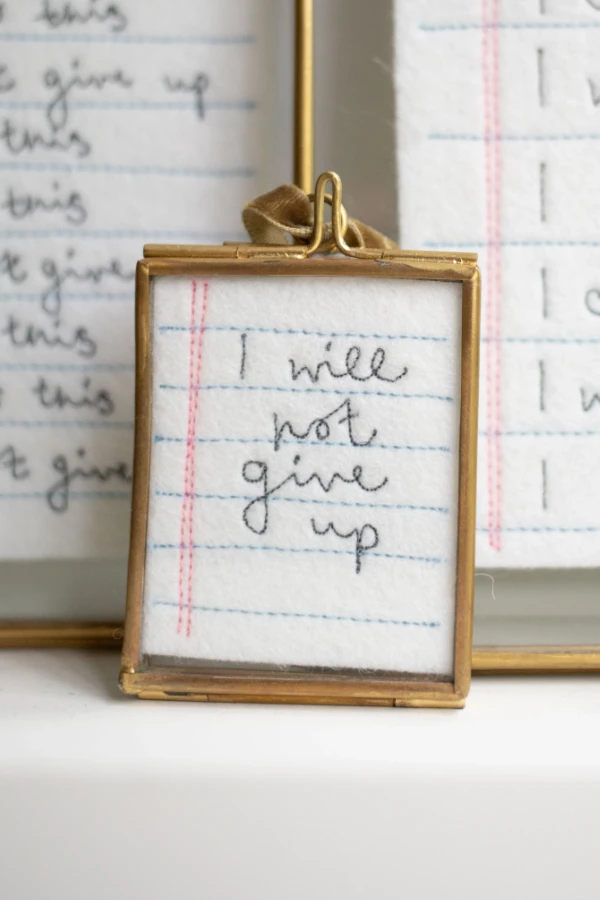 this
t give up
this
this
t give
this
this
t give
I will
not
give
up
I
I
I
I
I